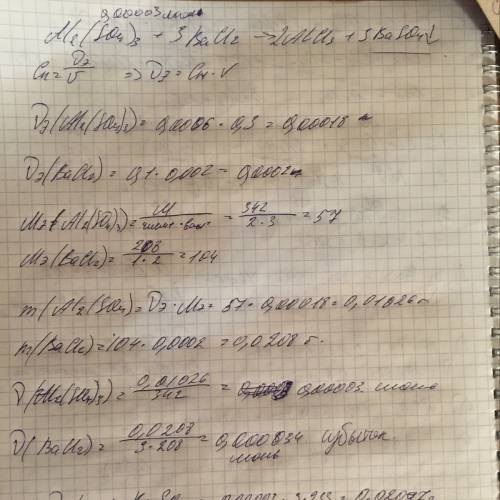 0,00003 моль
Al₂(SO₄)₃ + 3BaCl₂ → 2AlCl₃ + 3BaSO₄↓
Cн = νэ/V => νэ = Cн · V
νэ(Al₂(SO₄)₃) = 0,0006 · 0,3 = 0,00018
νэ(BaCl₂) = 0,1 · 0,002 = 0,0002
Mэ(Al₂(SO₄)₃) = M/ = 342/2·3 = 57
Mэ(BaCl₂) = 208/1·2 = 104
m(Al₂(SO₄)₃) = νэ · Mэ = 57 · 0,00018 = 0,01026 г
m(BaCl₂) = 104 · 0,0002 = 0,0208 г.
ν(Al₂(SO₄)₃) = 0,01026/342 = 0,00003 моль
ν(BaCl₂) = 0,0208/3·208 = 0,000034 избыток
моль